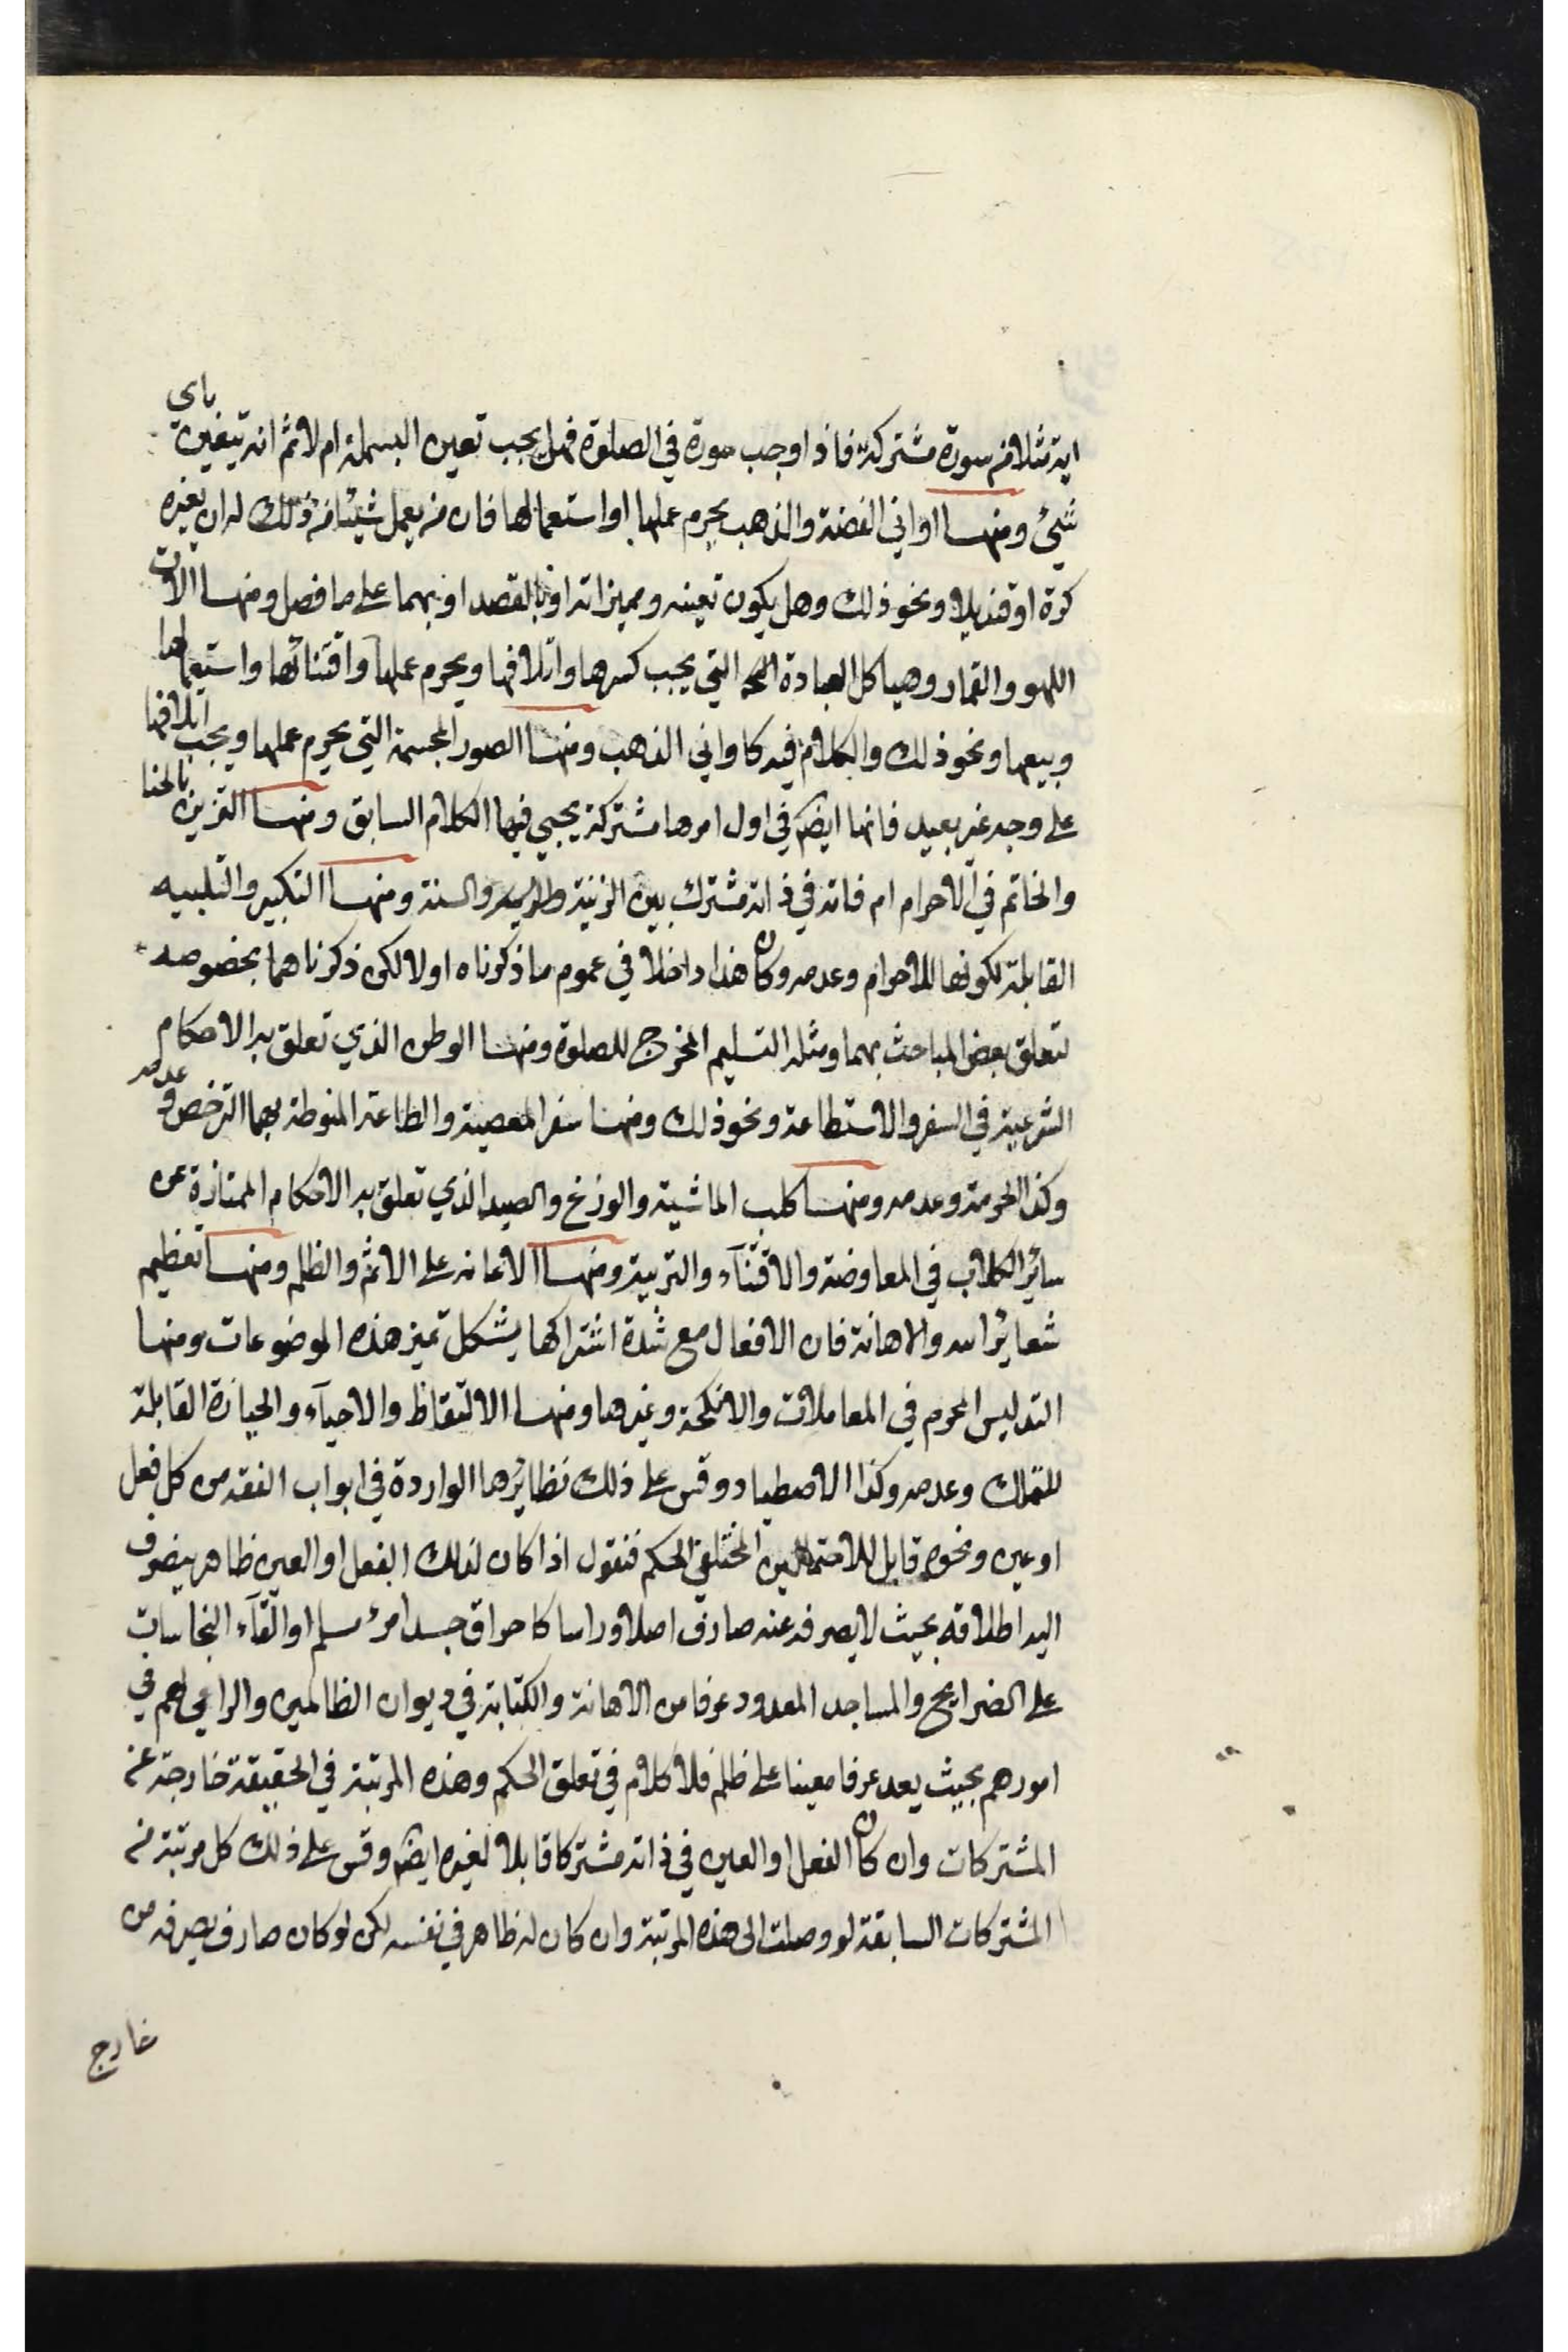 اية مثلا من سورة مشتركة فاذا وجب سورة في الصلوة فهل يجب تعين البسملة ام لا ثم انه يتعين باي
شيئ ومنها اواني الفضة والذهب يحرم عملها او استعمالها فان من يعمل شيئا من ذلك له ان يغيره
كرة او قنديلا ونحو ذلك وهل يكون تعينه ومميزاته او بالقصد او بهما على ما فصل ومنها الات
اللهو والقمار وهياكل العبادة التي يجب كسرها واتلافها ويحرم عملها واقتنائها واستعمالها
وبيعها ونحو ذلك والكلام فيه كاواني الذهب ومنها الصور المجسمة التي يحرم عملها ويجب اتلافها
على وجه غير بعيد فانها ايضا في اول امرها مشتركة يجيئ فيها الكلام السابق ومنها التزين بالحنا
والخاتم في الاحرام ام فانه في ذاته مشترك بين الزينة والسنة ومنها التكبير والتلبيه
القابلة لكونها للاحرام وعدمه وكان هذا داخلا في عموم ما ذكرناه اولا لكن ذكرناهما بخصوصه
لتعلق بعض المباحث بهما ومثله التسليم المخرج للصلوة ومنها الوطن الذي تعلق به الاحكام
الشرعية في السفر والاستطاعة ونحو ذلك ومنها سفر المعصية والطاعة المنوطة بهما الترخص وعدمه
وكذا الحرمة وعدمه ومنها كلب الماشية والوزغ والصيد الذي تعلق به الاحكام الممتازة عن
سائر الكلاب في المعاوضة والاقتنآء والتربية ومنها الاعانه على الاثم والظلم ومنها تعظيم
شعاير الله والاهانة فان الافعال مع شدة اشتراكها يشكل تميز هذه الموضوعات ومنها
التدليس المحرم في المعاملات والانكحة وغيرها ومنها الالتقاط والاحيآء والحيازة القابلة
للتملك وعدمه وكذا الاصطياد وقس على ذلك نظايرها الواردة في ابواب الفقه من كل فعل
او عين ونحوه قابل للاحتمالين المختلفي الحكم فنقول اذا كان لذلك الفعل او العين ظاهر ينصرف
اليه اطلاقه بحيث لا يصرفه عنه صارف اصلا وراسا كاحراق جسد امرء مسلم او القآء النجاسات
على الضرايح والمساجد المعدود عرفا من الاهانة والكتابة في ديوان الظالمين والراعي لهم في
امورهم بحيث يعد عرفا معينا على ظلم فلا كلام في تعلق الحكم وهذه المرتبة في الحقيقة خارجة عن
المشتركات وان كان الفعل او العين في ذاته مشتركا قابلا لغيره ايضا وقس على ذلك كل مرتبة من
المشتركات السابقة لو وصلت الى هذه المرتبة وان كان له ظاهر في نفسه لكن لو كان صارف يصرفه من
خارج